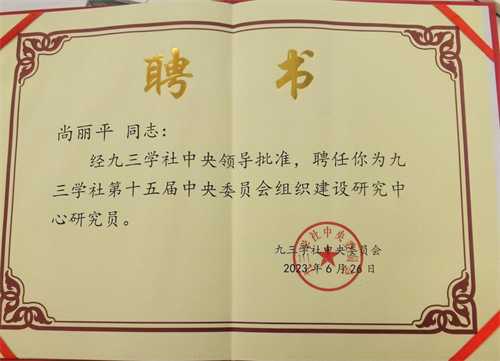 聘书
尚丽平 同志：
经九三学社中央领导批准，聘任你为九
三学社第十五届中央委员会组织建设研究中
心研究员。
九三学社中央委员会
2023年6月26日